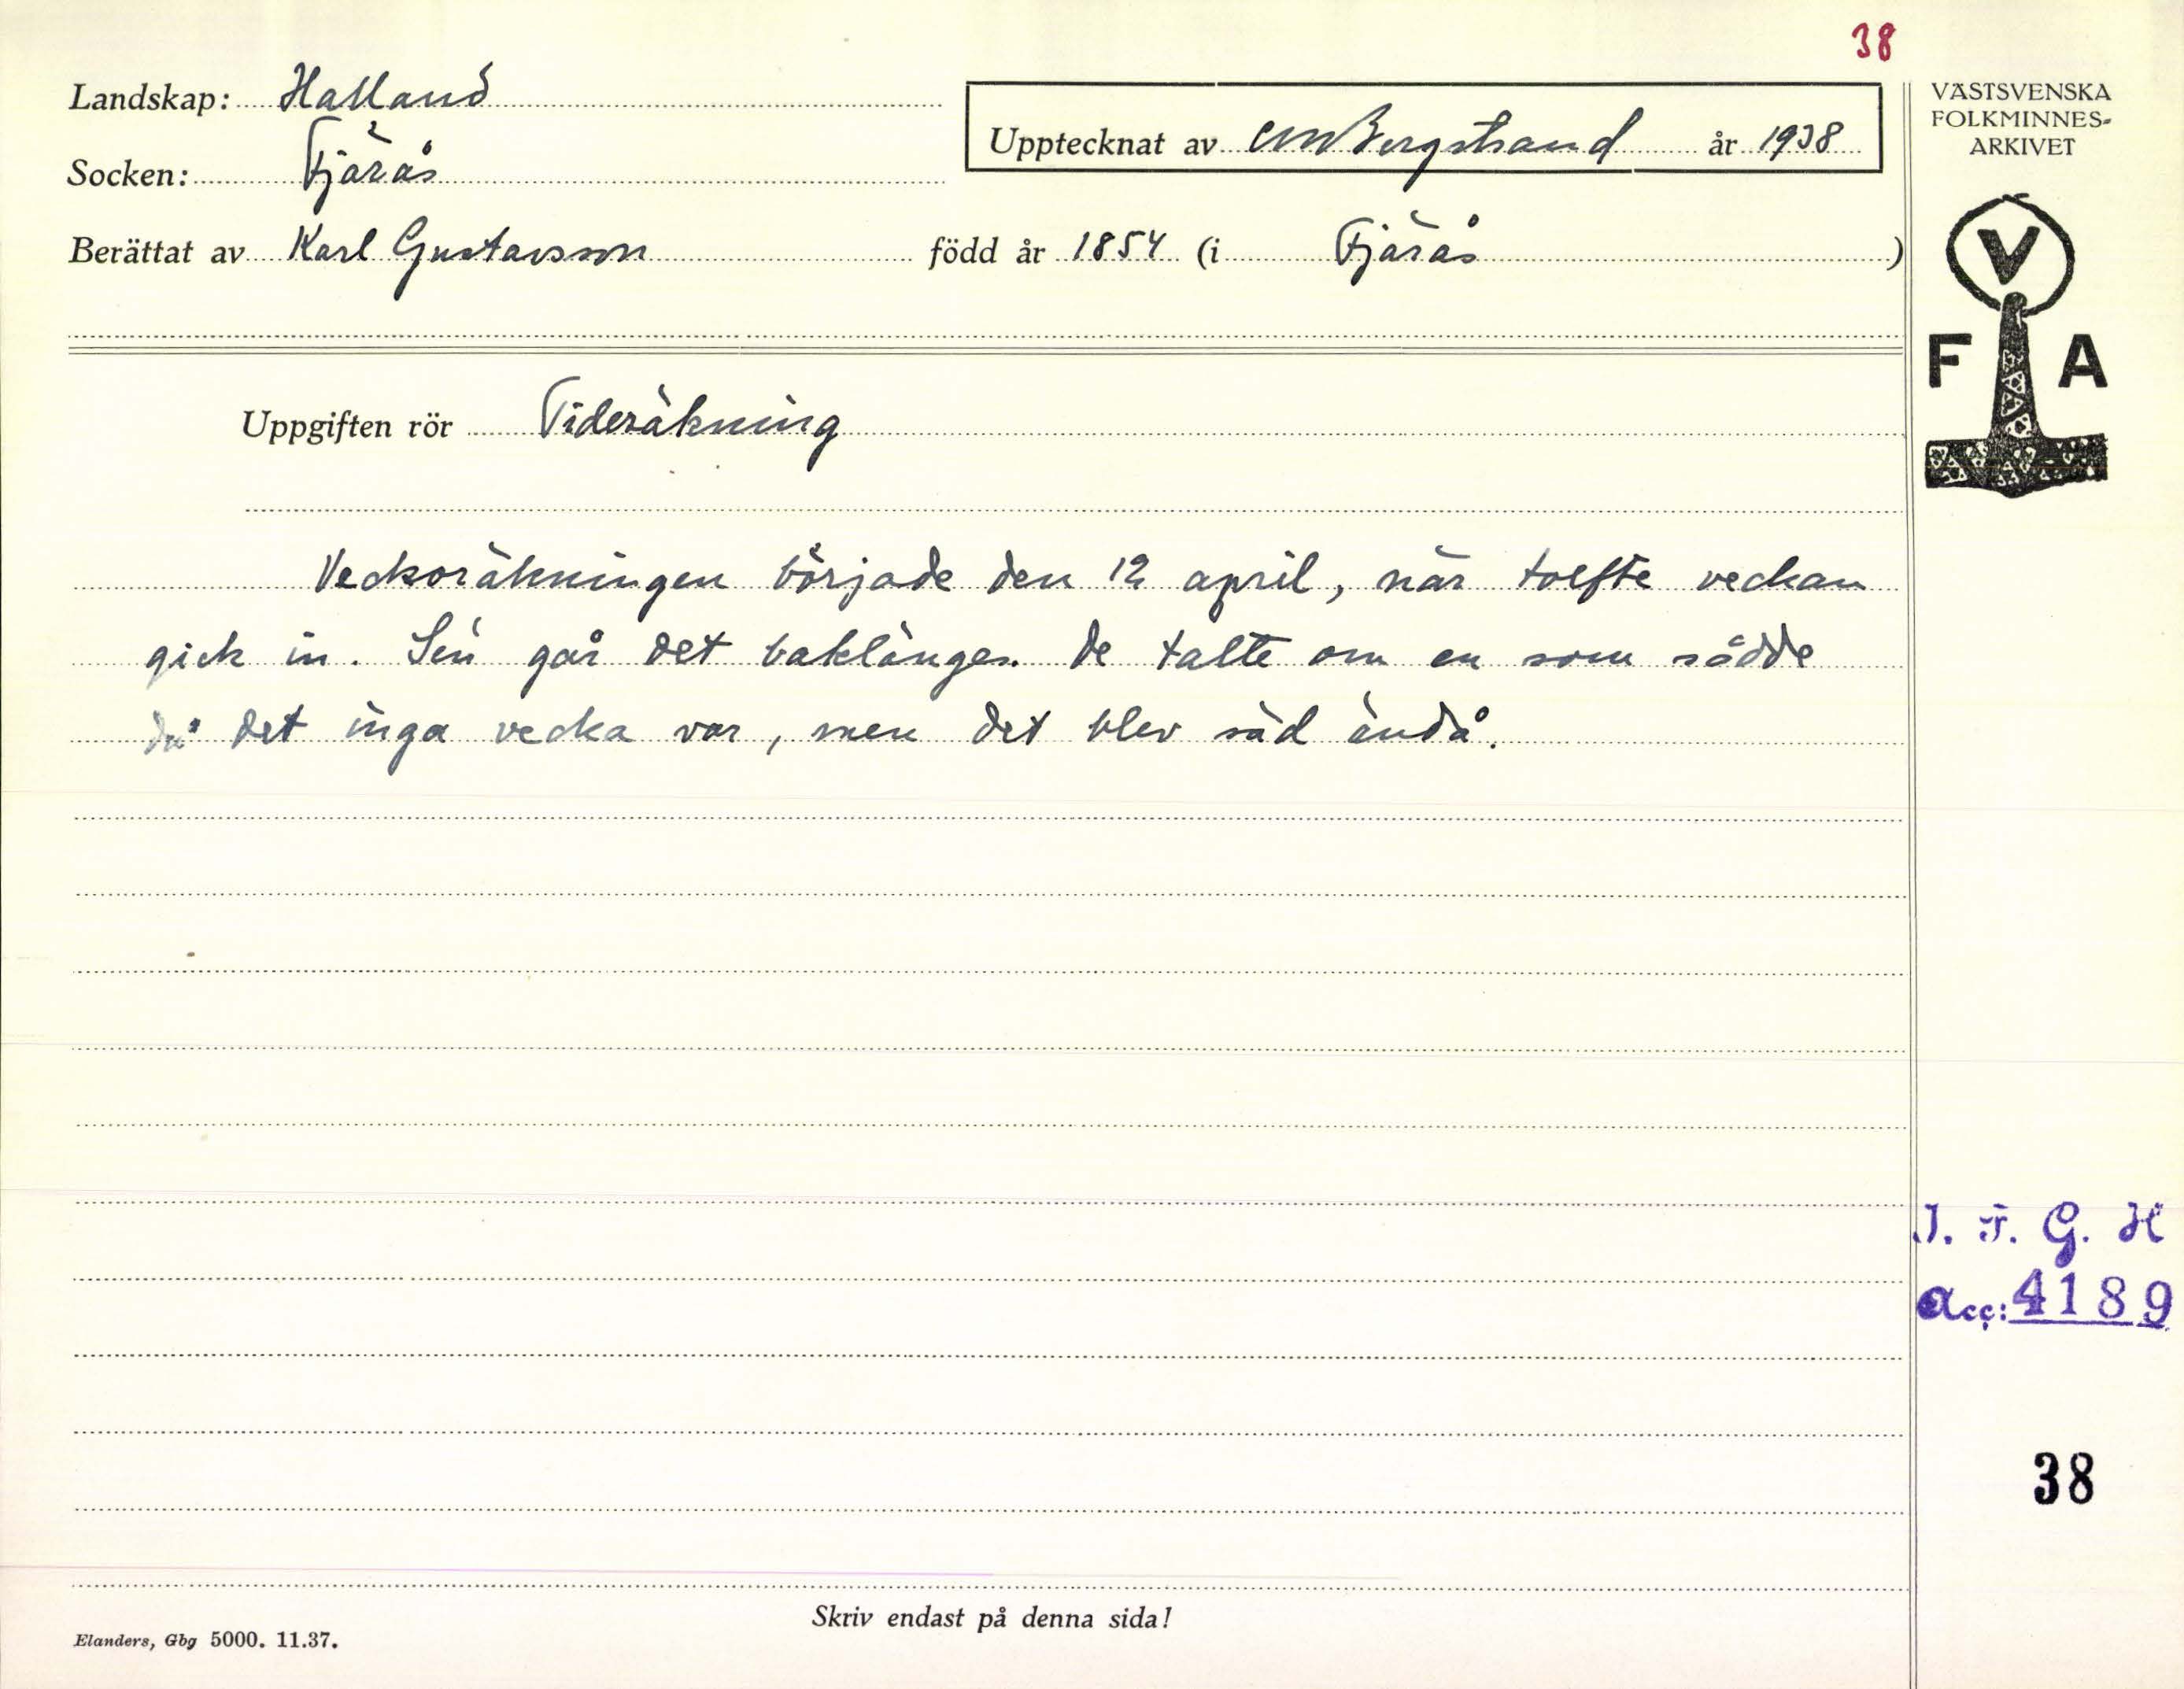 38
Landskap: Halland
Socken: Fjärås
Upptecknat av CM Bergstrand år 1938
Berättat av Karl Gustavsson född år 1854 (i Fjärås )
VÄSTSVENSKA
FOLKMINNES-
ARKIVET
V
F A
Uppgiften rör Tideräkning
Veckoräkningen började den 12 april, när tolfte veckan
gick in. Sen går det baklänges. De talte om en som sådde
då det inga vecka var, men det blev säd ändå.
I. F. G. H
Acc: 4189
38
Skriv endast på denna sida!
Elanders, Gbg 5000. 11.37.